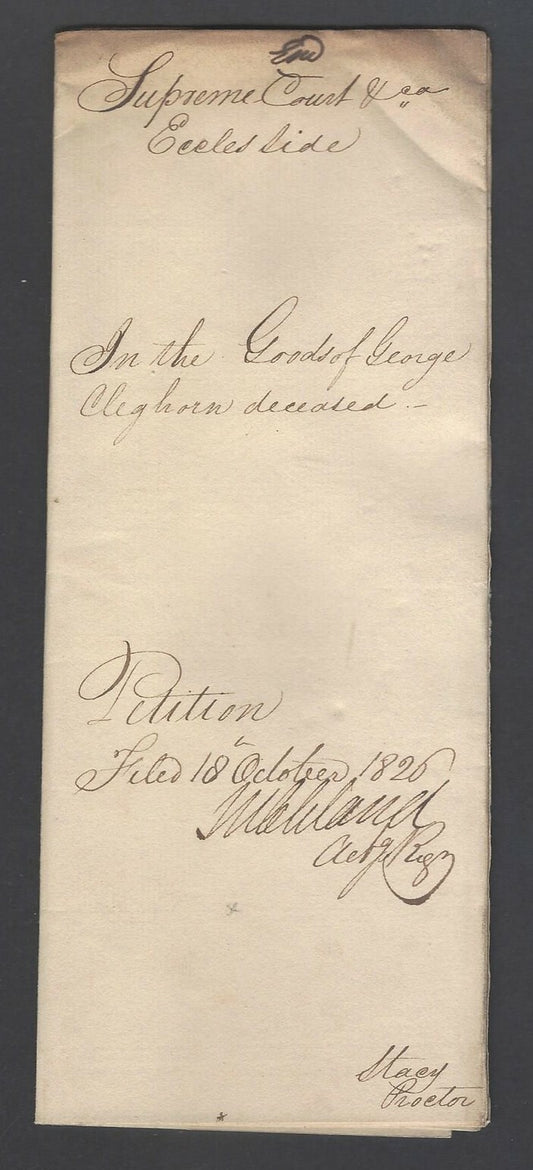 Supreme Court & ca
Eccles Side
In the Goods of George
Cleghorn deceased. -
Petition
Filed 18th October 1826
Actg Regr
Stacy
Proctor